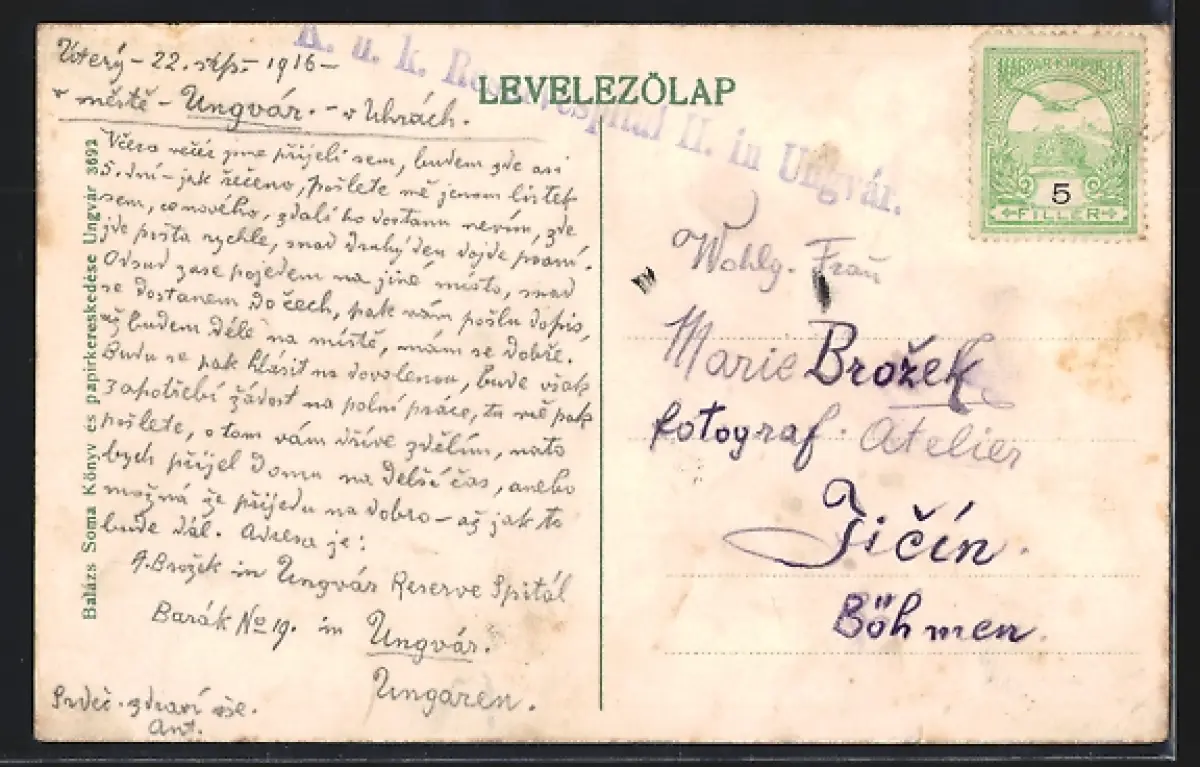 Úterý - 22. srp. - 1916 -
v městě - Ungvár. - v Uhrách.
Včera večer jsme přijeli sem, budem zde asi
5. dní - jak řečeno, pošlete mě jenom lístek
sem, co nového, zdali ho dostanu nevím, zde
jde pošta rychle, snad druhý den dojde psaní.
Odsud zase pojedem na jiné místo, snad
se dostanem do čech, pak vám pošlu dopis,
až budem déle na místě, mám se dobře.
Budu se pak hlásit na dovolenou, bude však
zapotřebí žádost na polní práce, tu mě pak
pošlete, o tom vám dříve zdělím, nato
bych přijel domu na delší čas, anebo
možná že přijedu na dobro - až jak to
bude dál. Adresa je:
A. Brožek in Ungvár Reserve Spitál
Barák No 19. in Ungvár.
Ungaren.
Srdeč. zdraví vše.
Ant.
Balázs Soma Könyv és papirkereskedése Ungvár 3693
K. u. k. Reservespital II. in Ungvár.
LEVELEZŐLAP
MAGYAR KIR. POSTA
5
FILLÉR
Wohlg. Frau
Marie Brožek
fotograf. Atelier
Jičín.
Böhmen.